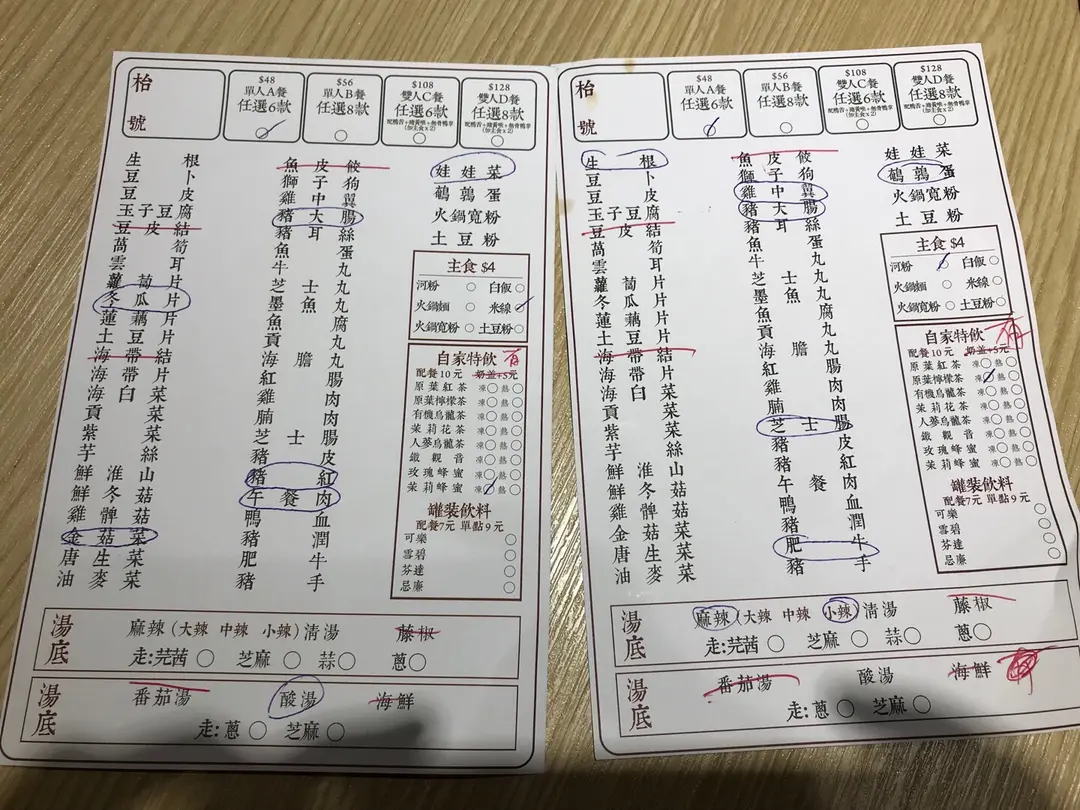 枱號
$48
單人A餐
任選6款
$56
單人B餐
任選8款
$108
雙人C餐
任選6款
$128
雙人D餐
任選8款
生根
豆卜
豆皮
玉子豆腐
豆皮結
萵筍
雲耳
蘿蔔片
冬瓜片
蓮藕片
土豆片
海帶結
海帶片
海白菜
貢菜
紫菜
芋絲
鮮淮山
鮮冬菇
雞髀菇
金菇菜
唐生菜
油麥菜
魚皮餃
獅子狗
雞中翼
豬大腸
豬耳絲
魚蛋
牛丸
芝士丸
墨魚丸
魚腐
貢丸
海膽丸
紅腸
雞肉
腩肉
芝士腸
豬皮
豬紅
午餐肉
鴨血
豬潤
肥牛
豬手
娃娃菜
鵪鶉蛋
火鍋寬粉
土豆粉
主食 $4
河粉 白飯
火鍋麵 米線
火鍋寬粉 土豆粉
自家特飲
配餐10元 奶蓋+5元
原葉紅茶 凍 熱
原葉檸檬茶 凍 熱
有機烏龍茶 凍 熱
茉莉花茶 凍 熱
人蔘烏龍茶 凍 熱
鐵觀音 凍 熱
玫瑰蜂蜜 凍 熱
茉莉蜂蜜 凍 熱
罐裝飲料
配餐7元 單點9元
可樂
雪碧
芬達
忌廉
湯底
麻辣(大辣 中辣 小辣) 清湯 藤椒
走:芫茜 芝麻 蒜 蔥
湯底
番茄湯 酸湯 海鮮
走:蔥 芝麻
枱號
$48
單人A餐
任選6款
$56
單人B餐
任選8款
$108
雙人C餐
任選6款
$128
雙人D餐
任選8款
生根
豆卜
豆皮
玉子豆腐
豆皮結
萵筍
雲耳
蘿蔔片
冬瓜片
蓮藕片
土豆片
海帶結
海帶片
海白菜
貢菜
紫菜
芋絲
鮮淮山
鮮冬菇
雞髀菇
金菇菜
唐生菜
油麥菜
魚皮餃
獅子狗
雞中翼
豬大腸
豬耳絲
魚蛋
牛丸
芝士丸
墨魚丸
魚腐
貢丸
海膽丸
紅腸
雞肉
腩肉
芝士腸
豬皮
豬紅
午餐肉
鴨血
豬潤
肥牛
豬手
娃娃菜
鵪鶉蛋
火鍋寬粉
土豆粉
主食 $4
河粉 白飯
火鍋麵 米線
火鍋寬粉 土豆粉
自家特飲
配餐10元 奶蓋+5元
原葉紅茶 凍 熱
原葉檸檬茶 凍 熱
有機烏龍茶 凍 熱
茉莉花茶 凍 熱
人蔘烏龍茶 凍 熱
鐵觀音 凍 熱
玫瑰蜂蜜 凍 熱
茉莉蜂蜜 凍 熱
罐裝飲料
配餐7元 單點9元
可樂
雪碧
芬達
忌廉
湯底
麻辣(大辣 中辣 小辣) 清湯 藤椒
走:芫茜 芝麻 蒜 蔥
湯底
番茄湯 酸湯 海鮮
走:蔥 芝麻